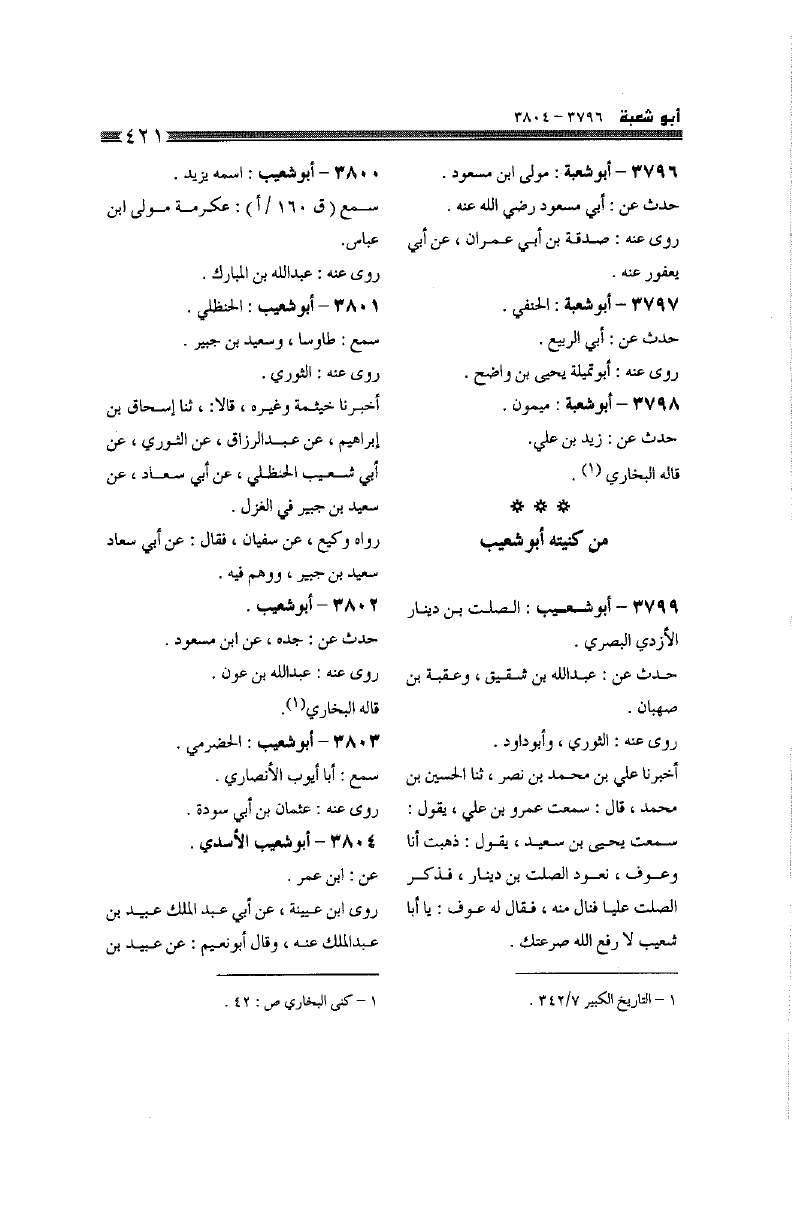 أبو شعبة ٣٧٩٦ – ٣٨٠٤
٤٢١
٣٧٩٦ – أبو شعبة : مولى ابن مسعود .
حدث عن : أبي مسعود رضي الله عنه .
روى عنه : صدقة بن أبي عمران ، عن أبي
يعفور عنه .
٣٧٩٧ – أبو شعبة : الحنفي .
حدث عن : أبي الربيع .
روى عنه : أبو تميلة يحيى بن واضح .
٣٧٩٨ – أبو شعبة : ميمون .
حدث عن : زيد بن علي.
قاله البخاري (١) .
* * *
من كنيته أبو شعيب
٣٧٩٩ – أبو شعيب : الصلت بن دينار
الأزدي البصري .
حدث عن : عبدالله بن شقيق ، وعقبة بن
صهبان .
روى عنه : الثوري ، وأبو داود .
أخبرنا علي بن محمد بن نصر ، ثنا الحسين بن
محمد ، قال : سمعت عمرو بن علي ، يقول :
سمعت يحيى بن سعيد ، يقول : ذهبت أنا
وعوف ، نعود الصلت بن دينار ، فذكر
الصلت عليا فنال منه ، فقال له عوف : يا أبا
شعيب لا رفع الله صرعتك .
١ – التاريخ الكبير ٣٤٢/٧ .
٣٨٠٠ – أبو شعيب : اسمه يزيد .
سمع (ق ١٦٠ /أ) : عكرمة مولى ابن
عباس.
روى عنه : عبدالله بن المبارك .
٣٨٠١ – أبو شعيب : الحنظلي .
سمع : طاوسا ، وسعيد بن جبير .
روى عنه : الثوري .
أخبرنا خيثمة وغيره ، قالا: ، ثنا إسحاق بن
إبراهيم ، عن عبدالرزاق ، عن الثوري ، عن
أبي شعيب الحنظلي ، عن أبي سعاد ، عن
سعيد بن جبير في الغزل .
رواه وكيع ، عن سفيان ، فقال : عن أبي سعاد
سعيد بن جبير ، ووهم فيه .
٣٨٠٢ – أبو شعيب .
حدث عن : جده ، عن ابن مسعود .
روى عنه : عبدالله بن عون .
قاله البخاري(١).
٣٨٠٣ – أبو شعيب : الحضرمي .
سمع : أبا أيوب الأنصاري .
روى عنه : عثمان بن أبي سودة .
٣٨٠٤ – أبو شعيب الأسدي .
عن : ابن عمر .
روى ابن عيينة ، عن أبي عبد الملك عبيد بن
عبدالملك عنه ، وقال أبونعيم : عن عبيد بن
١ – كنى البخاري ص : ٤٢ .